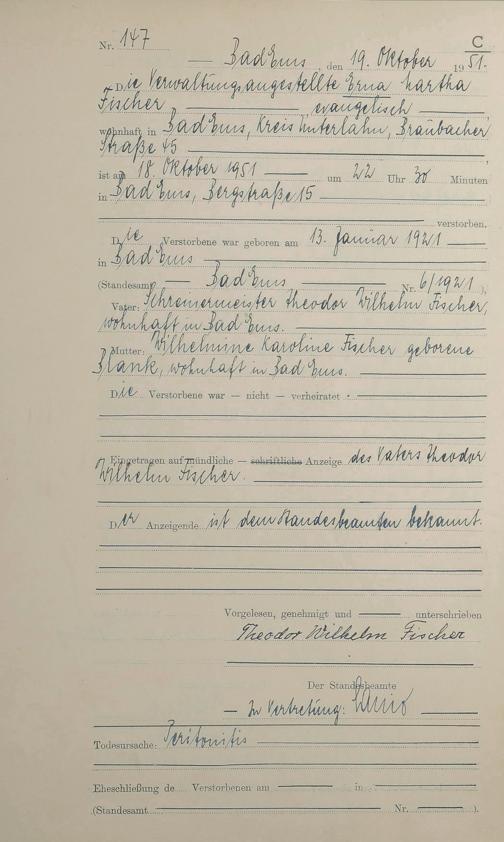 C
Nr. 147
— Bad Ems, den 19. Oktober 1951.
Die Verwaltungsangestellte Erna Martha
Fischer — evangelisch —
wohnhaft in Bad Ems, Kreis Unterlahn, Braubacher
Straße 45
ist am 18. Oktober 1951 — um 22 Uhr 30 Minuten
in Bad Ems, Bergstraße 15
verstorben.
Die Verstorbene war geboren am 13. Januar 1921
in Bad Ems
(Standesamt — Bad Ems — Nr. 6/1921),
Vater: Schreinermeister Theodor Wilhelm Fischer,
wohnhaft in Bad Ems.
Mutter: Wilhelmine Karoline Fischer geborene
Blank, wohnhaft in Bad Ems.
Die Verstorbene war — nicht — verheiratet.
Eingetragen auf mündliche — schriftliche Anzeige des Vaters Theodor
Wilhelm Fischer.
Der Anzeigende ist dem Standesbeamten bekannt.
Vorgelesen, genehmigt und — unterschrieben
Theodor Wilhelm Fischer
Der Standesbeamte
— In Vertretung:
Todesursache: Peritonitis
Eheschließung de Verstorbenen am — in —
(Standesamt — Nr. — ).